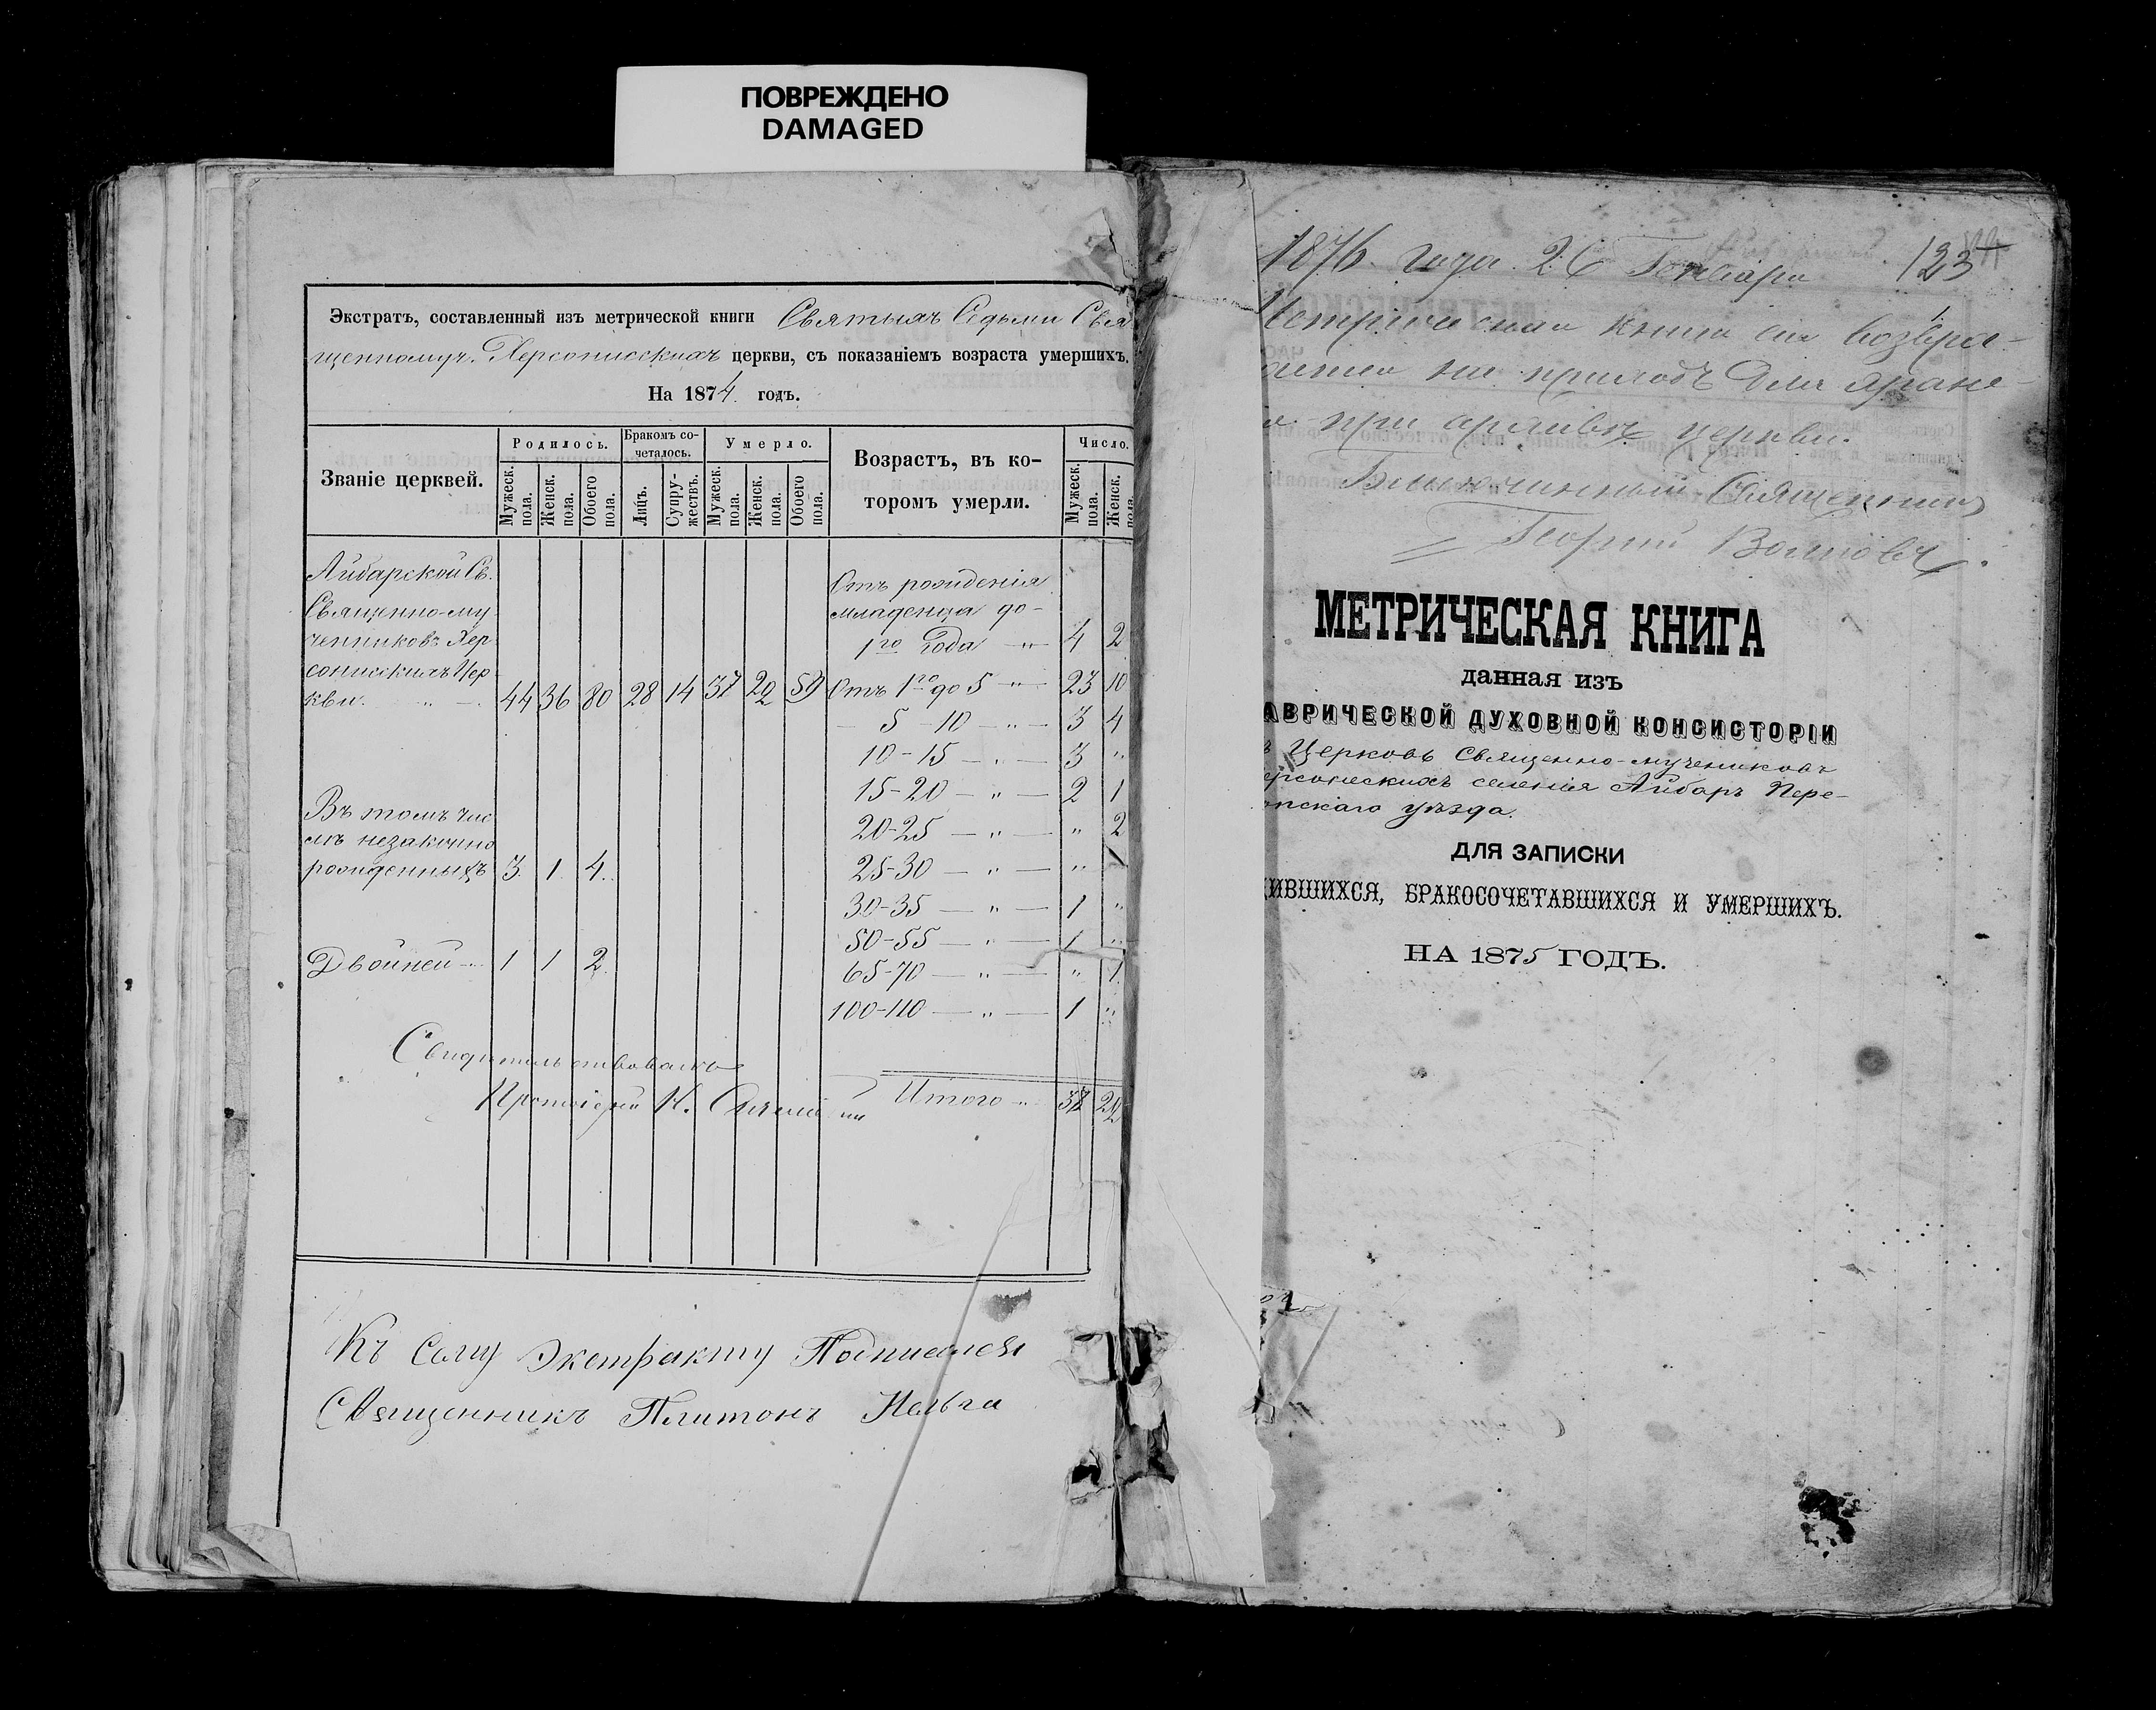 ПОВРЕЖДЕНО
DAMAGED
Экстратъ, составленный изъ метрической книги Святыхъ Седьми Свя
щенномуч. Херсонисскихъ церкви, съ показаніемъ возраста умершихъ.
На 1874 годъ.
Званіе церквей.
Родилось.
Мужеск. пола.
Женск. пола.
Обоего пола.
Бракомъ со-
четалось.
Лицъ.
Супру-
жествъ.
Умерло.
Мужеск. пола.
Женск. пола.
Обоего пола.
Возрастъ, въ ко-
торомъ умерли.
Число.
Мужеск. пола.
Женск. пола.
Айбарской Св.
Священно-му
чениковъ Хер
сонисскихъ Цер
кви. " — 44 36 80 28 14 37 22 59
Отъ рожденія
младенца до-
1го года — " 4 2
Отъ 1го до 5 — " — 23 10
— 5 — 10 — " — 3 4
10 — 15 — " — 3 "
15-20 — " — 2 1
20-25 — " — " 2
25-30 — " — "
30-35 — " — 1 "
50-55 — " — 1 "
65-70 — " — " 1
100-110 — " — 1 "
Въ томъ чис
лѣ незаконно
рожденныхъ 3. 1. 4.
Двойней — " 1 1 2.
Свидѣтельствовалъ
Протоіерей К.
Итого " 37 22
Къ Сему Экстракту Подписался
Священникъ Платонъ
1876 года 26 Генваря 123
Метрическая книга сія возвра-
щается на приходъ для хране-
я при архивѣ церкви.
Благочинный Священникъ
Георгій
МЕТРИЧЕСКАЯ КНИГА
данная изъ
АВРИЧЕСКОЙ ДУХОВНОЙ КОНСИСТОРІИ
ъ Церковь Священно-мучениковъ
ерсонескихъ селенія Айбаръ Пере-
опскаго уѣзда.
ДЛЯ ЗАПИСКИ
ИВШИХСЯ, БРАКОСОЧЕТАВШИХСЯ И УМЕРШИХЪ.
НА 1875 ГОДЪ.